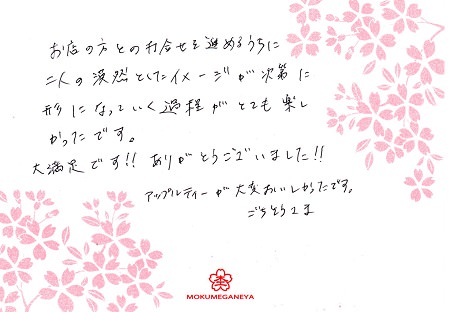 お店の方との打合せを進めるうちに
二人の漠然としたイメージが次第に
形になっていく過程がとても楽し
かったです。
大満足です!! ありがとうございました!!
アップルティーが大変おいしかったです。
ごちそうさま
MOKUMEGANEYA